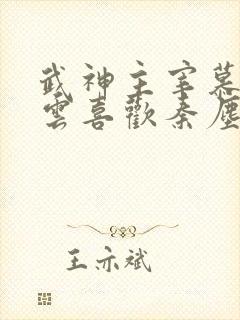 武神主宰慕
雲喜歡秦塵
王亦斌